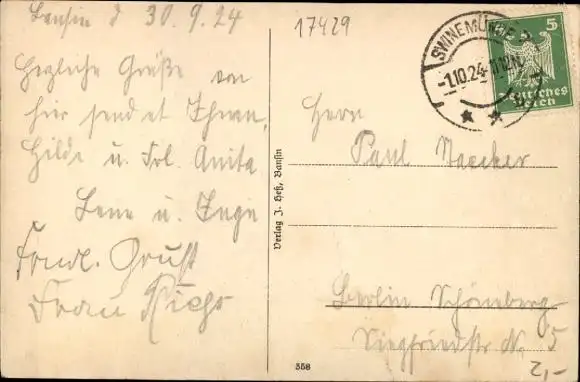 Bansin d 30.9.24
Herzliche Grüße von
hier sendet Ihnen,
Hilde u. Frl. Anita
Lene u. Inge
Freudl. Gruß
Frau
17429
SWINEMÜNDE
-1.10.24. 11-12 N
5
Deutsches
Reich
Herrn
Paul Naecker
Berlin Schöneberg
Siegfriedstr N. 5
2,-
Verlag J. Heß, Bansin
358